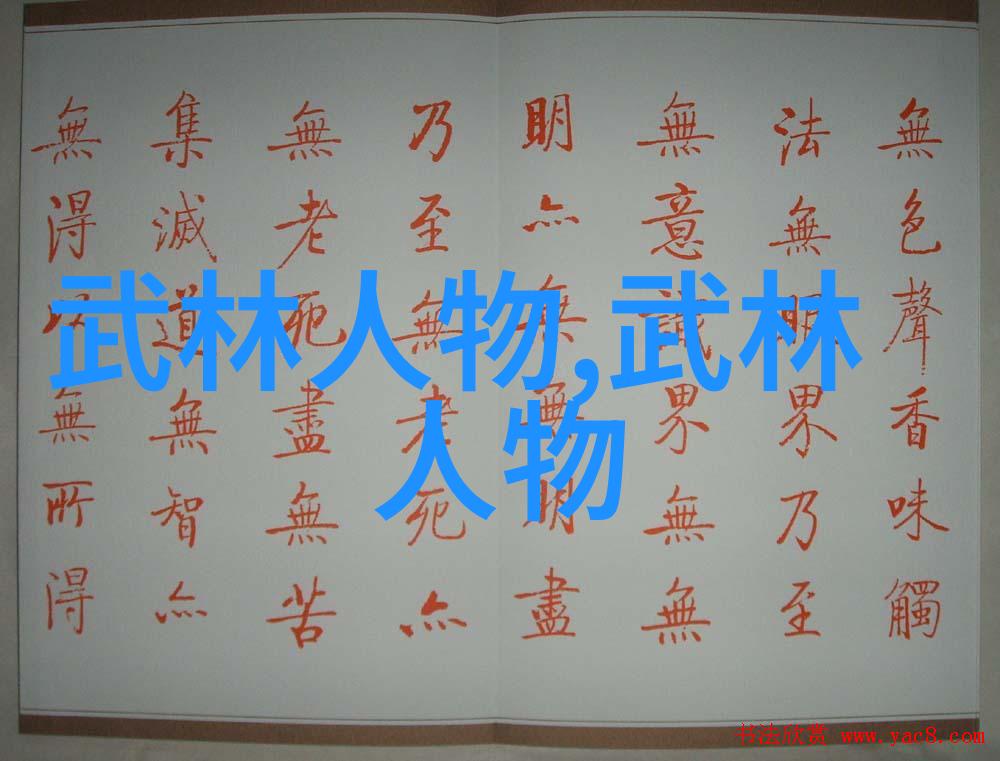 無色聲香味觸
法無眼界乃至
無意識界無無
明亦無無明盡
乃至無老死亦
無老死盡無苦
集滅道無智亦
無得以無所得
武林人物,武林
人物
书法欣赏 www.yac8.com